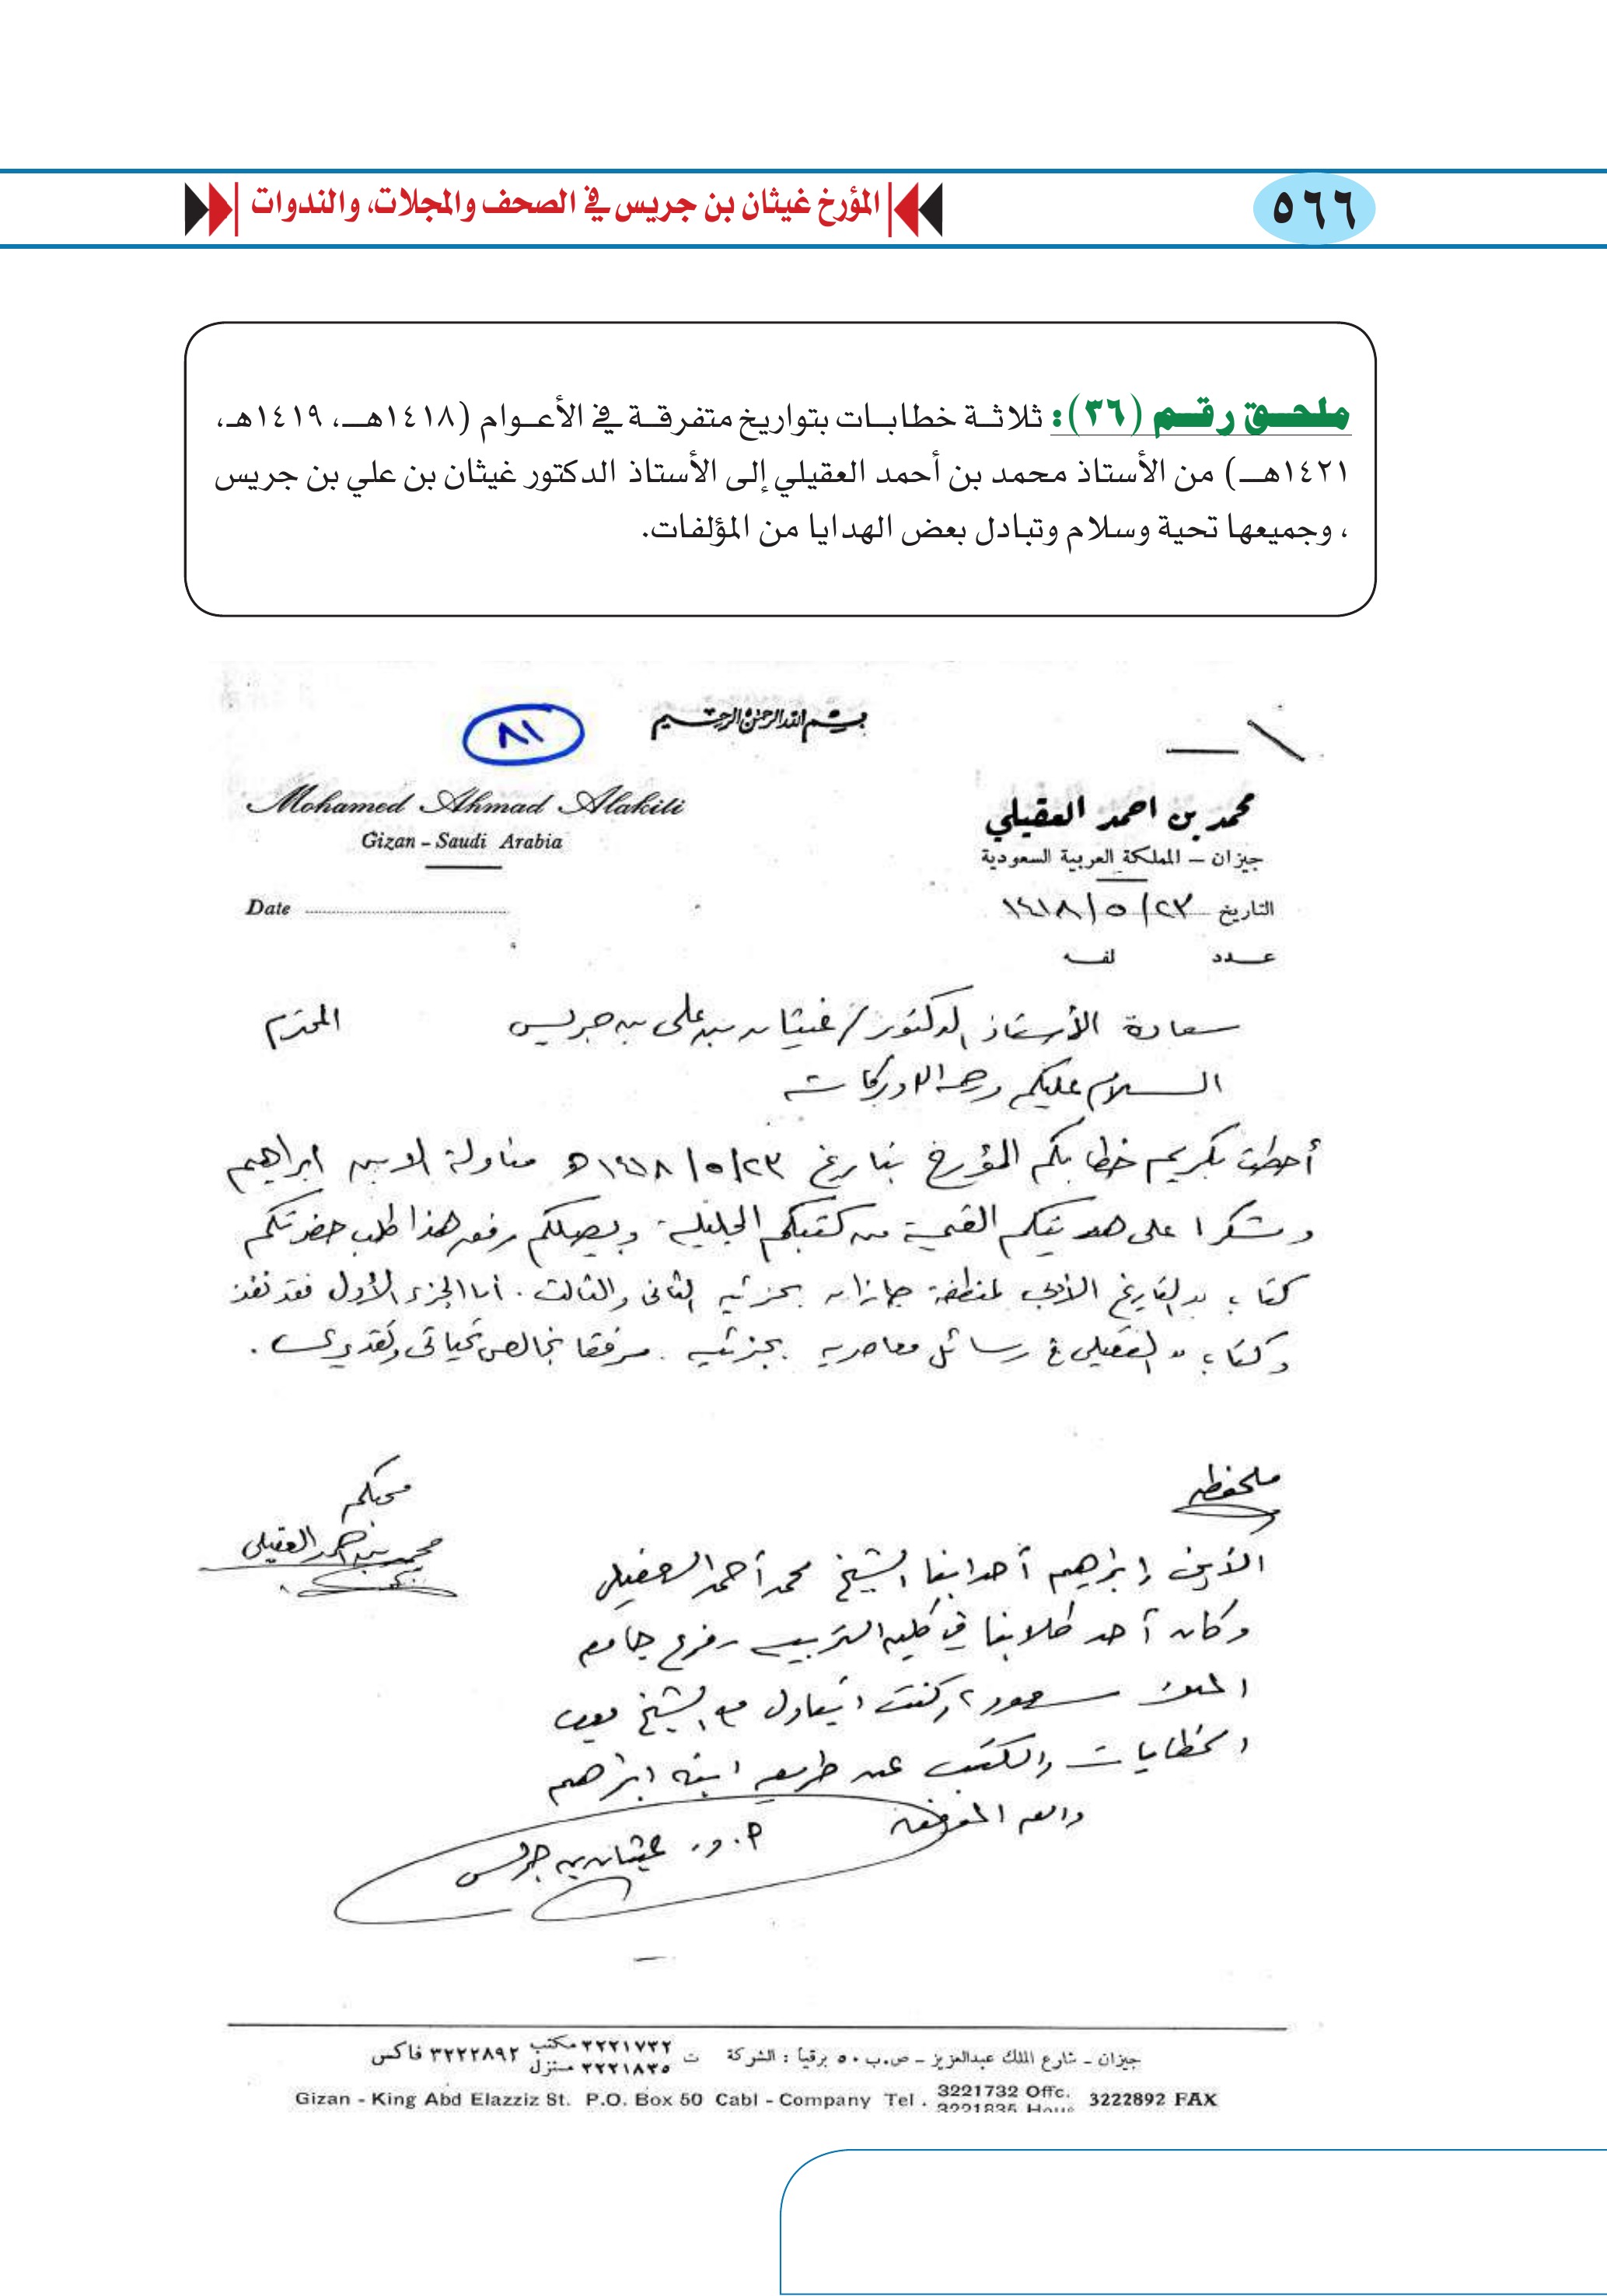 ٥٦٦
المؤرخ غيثان بن جريس في الصحف والمجلات، والندوات
ملحق رقم (٣٦): ثلاثة خطابات بتواريخ متفرقة في الأعوام (١٤١٨هـ، ١٤١٩هـ،
١٤٢١هـ) من الأستاذ محمد بن أحمد العقيلي إلى الأستاذ الدكتور غيثان بن علي بن جريس
، وجميعها تحية وسلام وتبادل بعض الهدايا من المؤلفات.
بسم الله الرحمن الرحيم
٨١
محمد بن احمد العقيلي
Mohamed Ahmad Alakili
جيزان – المملكة العربية السعودية
Gizan – Saudi Arabia
التاريخ ٢٣/ ٥/ ١٤١٨
Date
عدد لفه
سعادة الأستاذ الدكتور/ غيثان بن علي بن جريس المحترم
السلام عليكم ورحمة الله وبركاته
أحطت بكريم خطابكم المؤرخ بتاريخ ٢٣/ ٥/ ١٤١٨ هـ مناولة الابن ابراهيم
وشكرا على هديتكم القيمة من كتبكم الجليلة. ويصلكم رفق هذا طلب حضرتكم
كتاب " التاريخ الأدبي لمنطقة جازان بجزئيه الثاني والثالث. أما الجزء الأول فقد نفذ
وكتاب " العقيلي في رسائل معاصريه بجزئيه. مرفقا بخالص تحياتي وتقديري.
محبكم
محمد بن احمد العقيلي
ملحوظه
الابن إبراهيم أحد ابناء الشيخ محمد أحمد العقيلي
وكان أحد طلابنا في كلية التربيه فرع جامعة
الملك سعود، وكنت اتبادل مع الشيخ بعض
الخطابات والكتب عن طريق ابنه ابراهيم
والله الموفق
أ.د. غيثان بن جريس
جيزان – شارع الملك عبدالعزيز – ص.ب ٥٠ برقياً : الشركة ت ٣٢٢١٧٣٢ مكتب ٣٢٢١٨٣٥ منزل ٣٢٢٢٨٩٢ فاكس
Gizan - King Abd Elazziz St. P.O. Box 50 Cabl - Company Tel . 3221732 Offc. 3221835 Hous 3222892 FAX